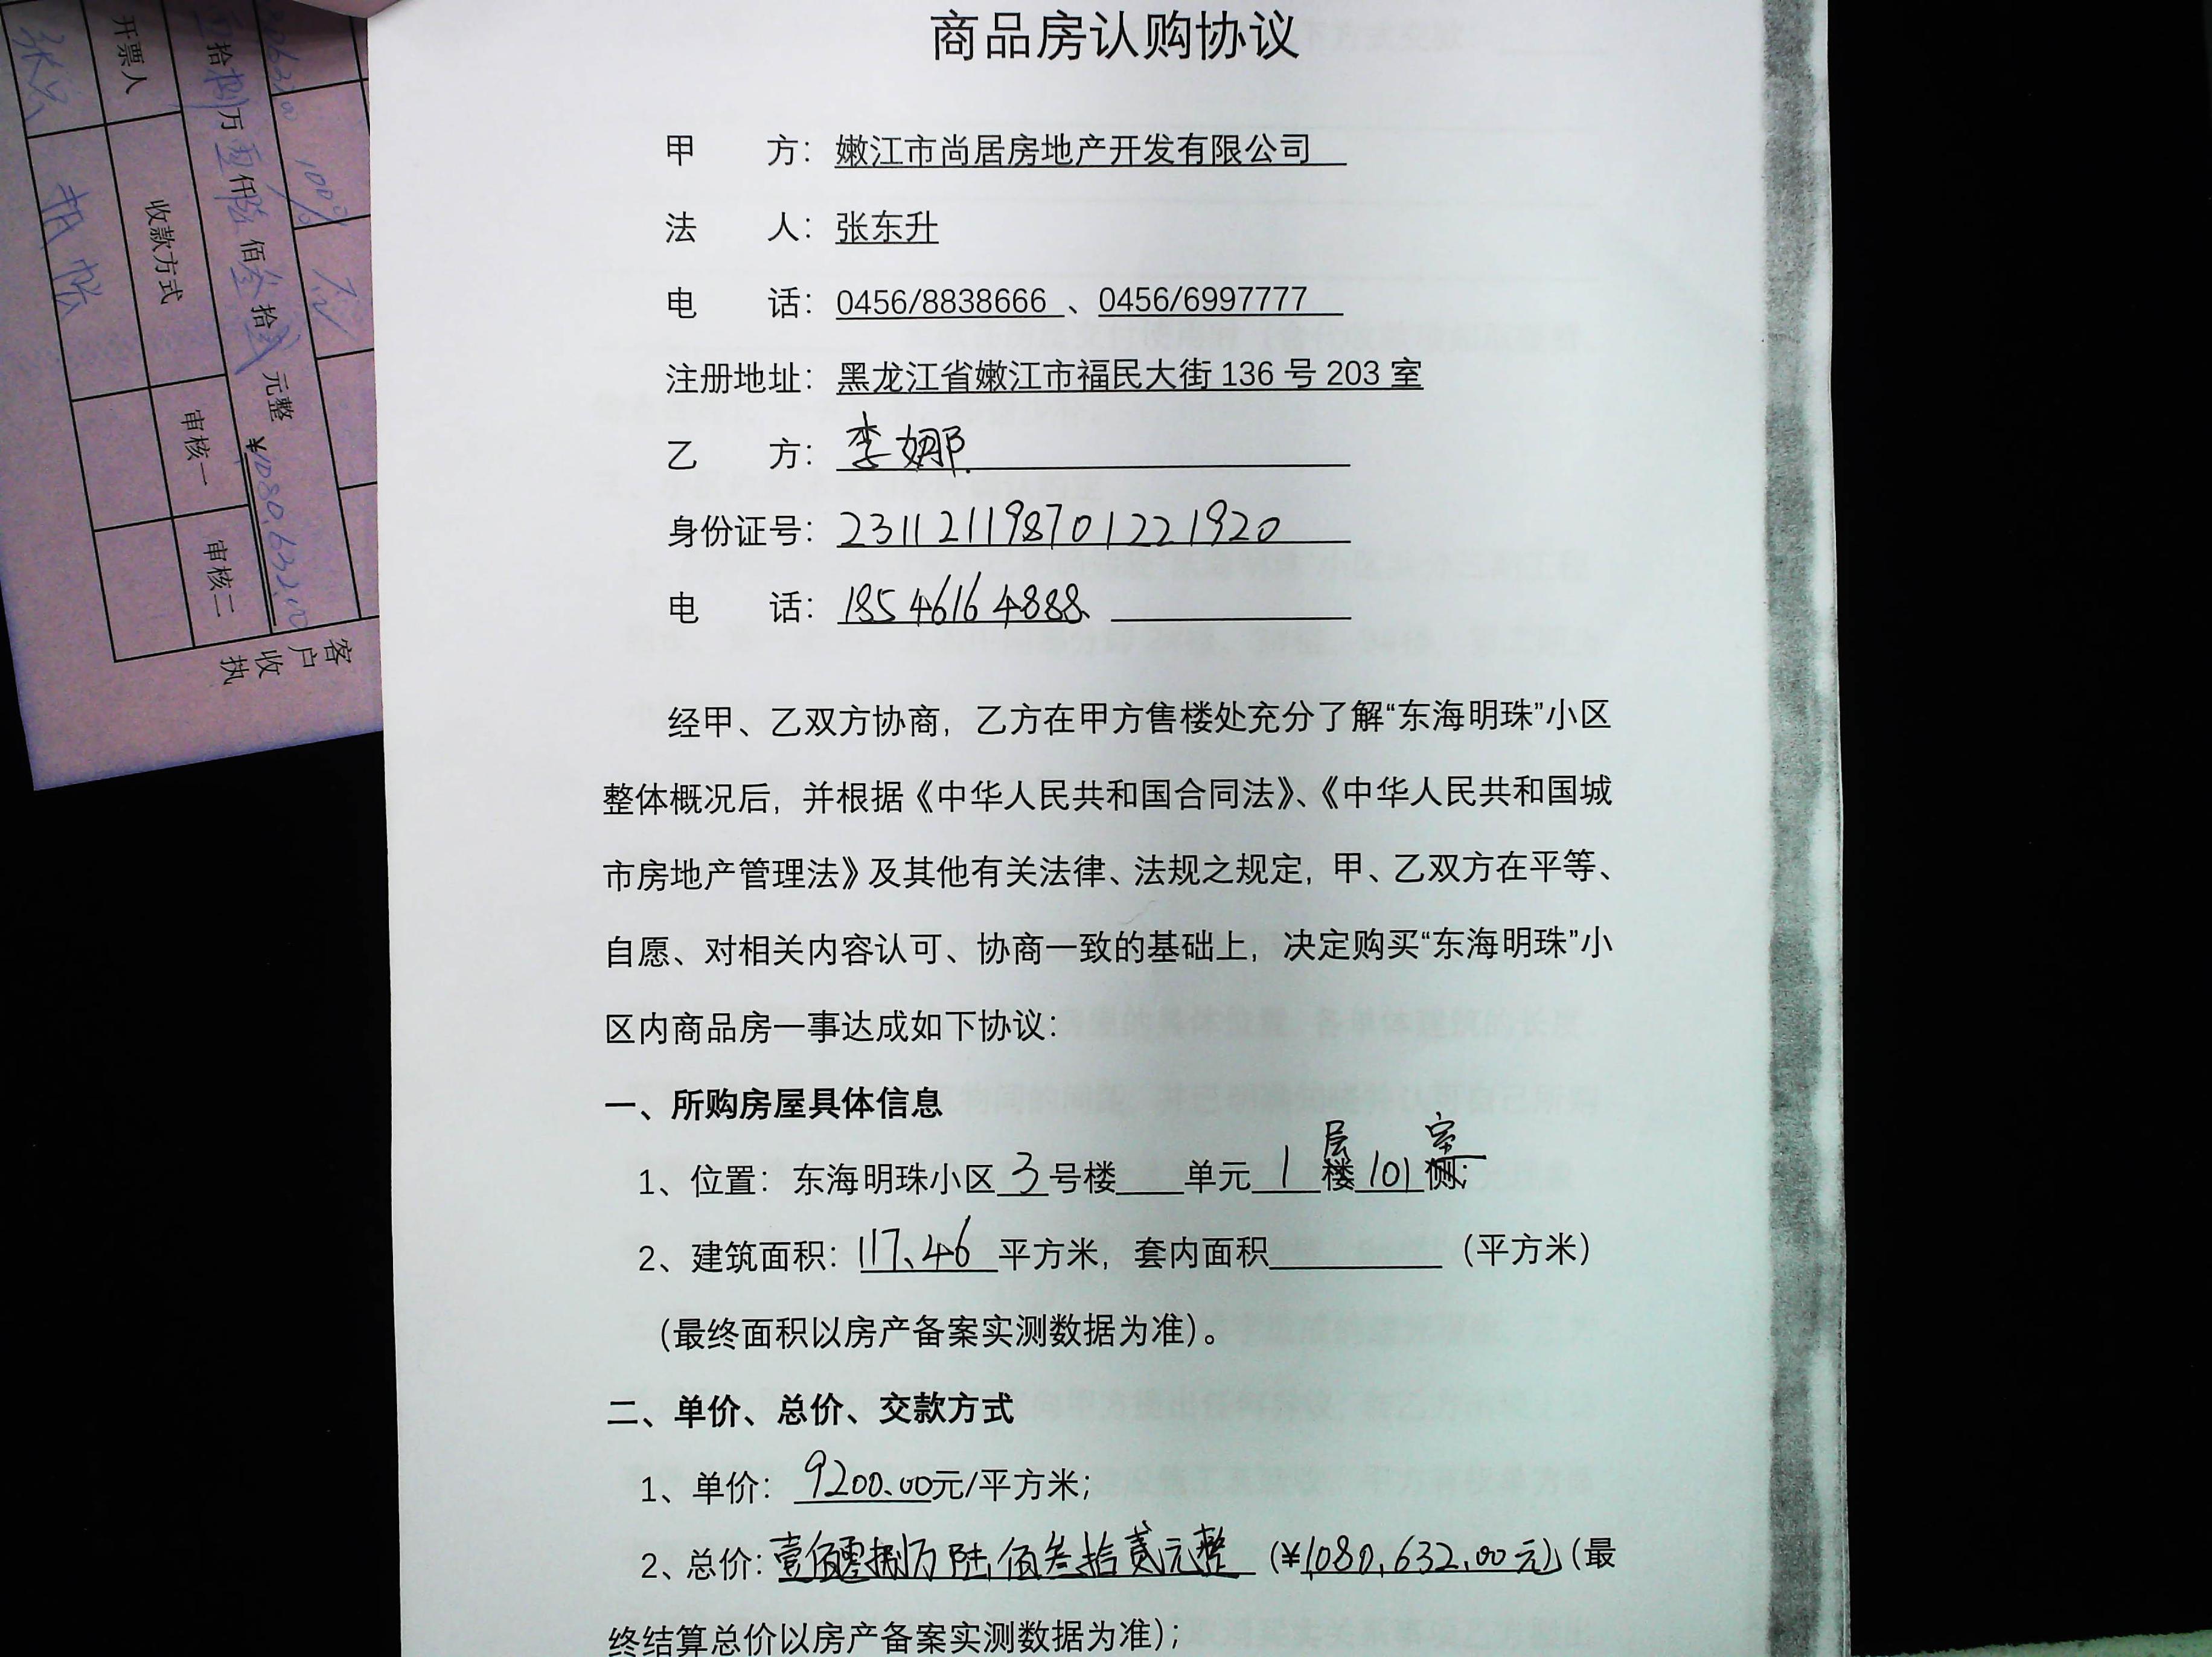 商品房认购协议
甲 方：嫩江市尚居房地产开发有限公司
法 人：张东升
电 话：0456/8838666 、0456/6997777
注册地址：黑龙江省嫩江市福民大街 136 号 203 室
乙 方：李娜
身份证号：231121198701221920
电 话：18546164888
经甲、乙双方协商，乙方在甲方售楼处充分了解“东海明珠”小区
整体概况后，并根据《中华人民共和国合同法》、《中华人民共和国城
市房地产管理法》及其他有关法律、法规之规定，甲、乙双方在平等、
自愿、对相关内容认可、协商一致的基础上，决定购买“东海明珠”小
区内商品房一事达成如下协议：
一、所购房屋具体信息
层 室
1、位置：东海明珠小区 3 号楼____单元 1 楼 101 侧；
2、建筑面积：117.46 平方米，套内面积__________（平方米）
（最终面积以房产备案实测数据为准）。
二、单价、总价、交款方式
1、单价：9200.00元/平方米；
2、总价：壹佰零捌万陆佰叁拾贰元整（¥1080,632.00元）（最
终结算总价以房产备案实测数据为准）；
100%
拾捌万零仟陆佰叁拾贰元整 ¥1080,632.00
开票人 收款方式 审核一 审核二
客户收执